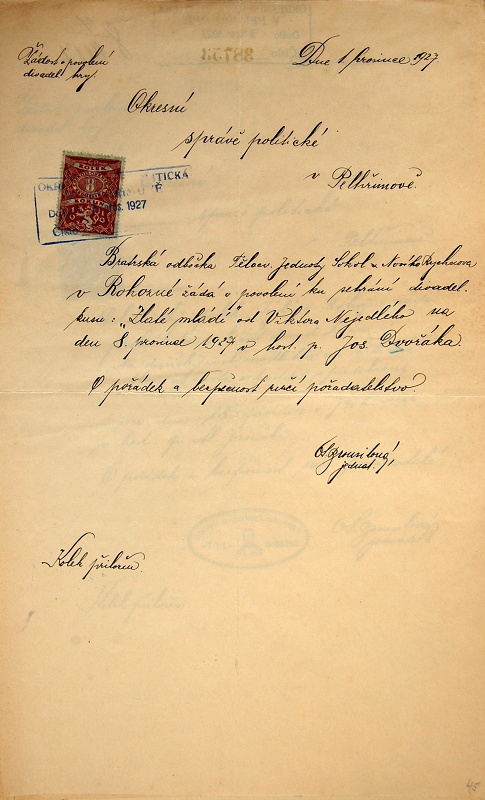 Žádost o povolení
divadel. hry.
Dne 1. prosince 1927.
Okresní
správě politické
v Pelhřimově.
KOLEK
8
OKR POLITICKÁ
Do pros. 1927
Číslo
Bratrská odbočka Tělocv. Jednoty Sokol v Novém Rychnově
v Rohozné žádá o povolení ku sehrání divadel.
kusu: „Zlaté mládí" od Viktora Nejedlého na
den 8. prosince 1927 v host. p. Jos. Dvořáka
O pořádek a bezpečnost ručí pořadatelstvo.
jednat.
Kolek přiložen.
45